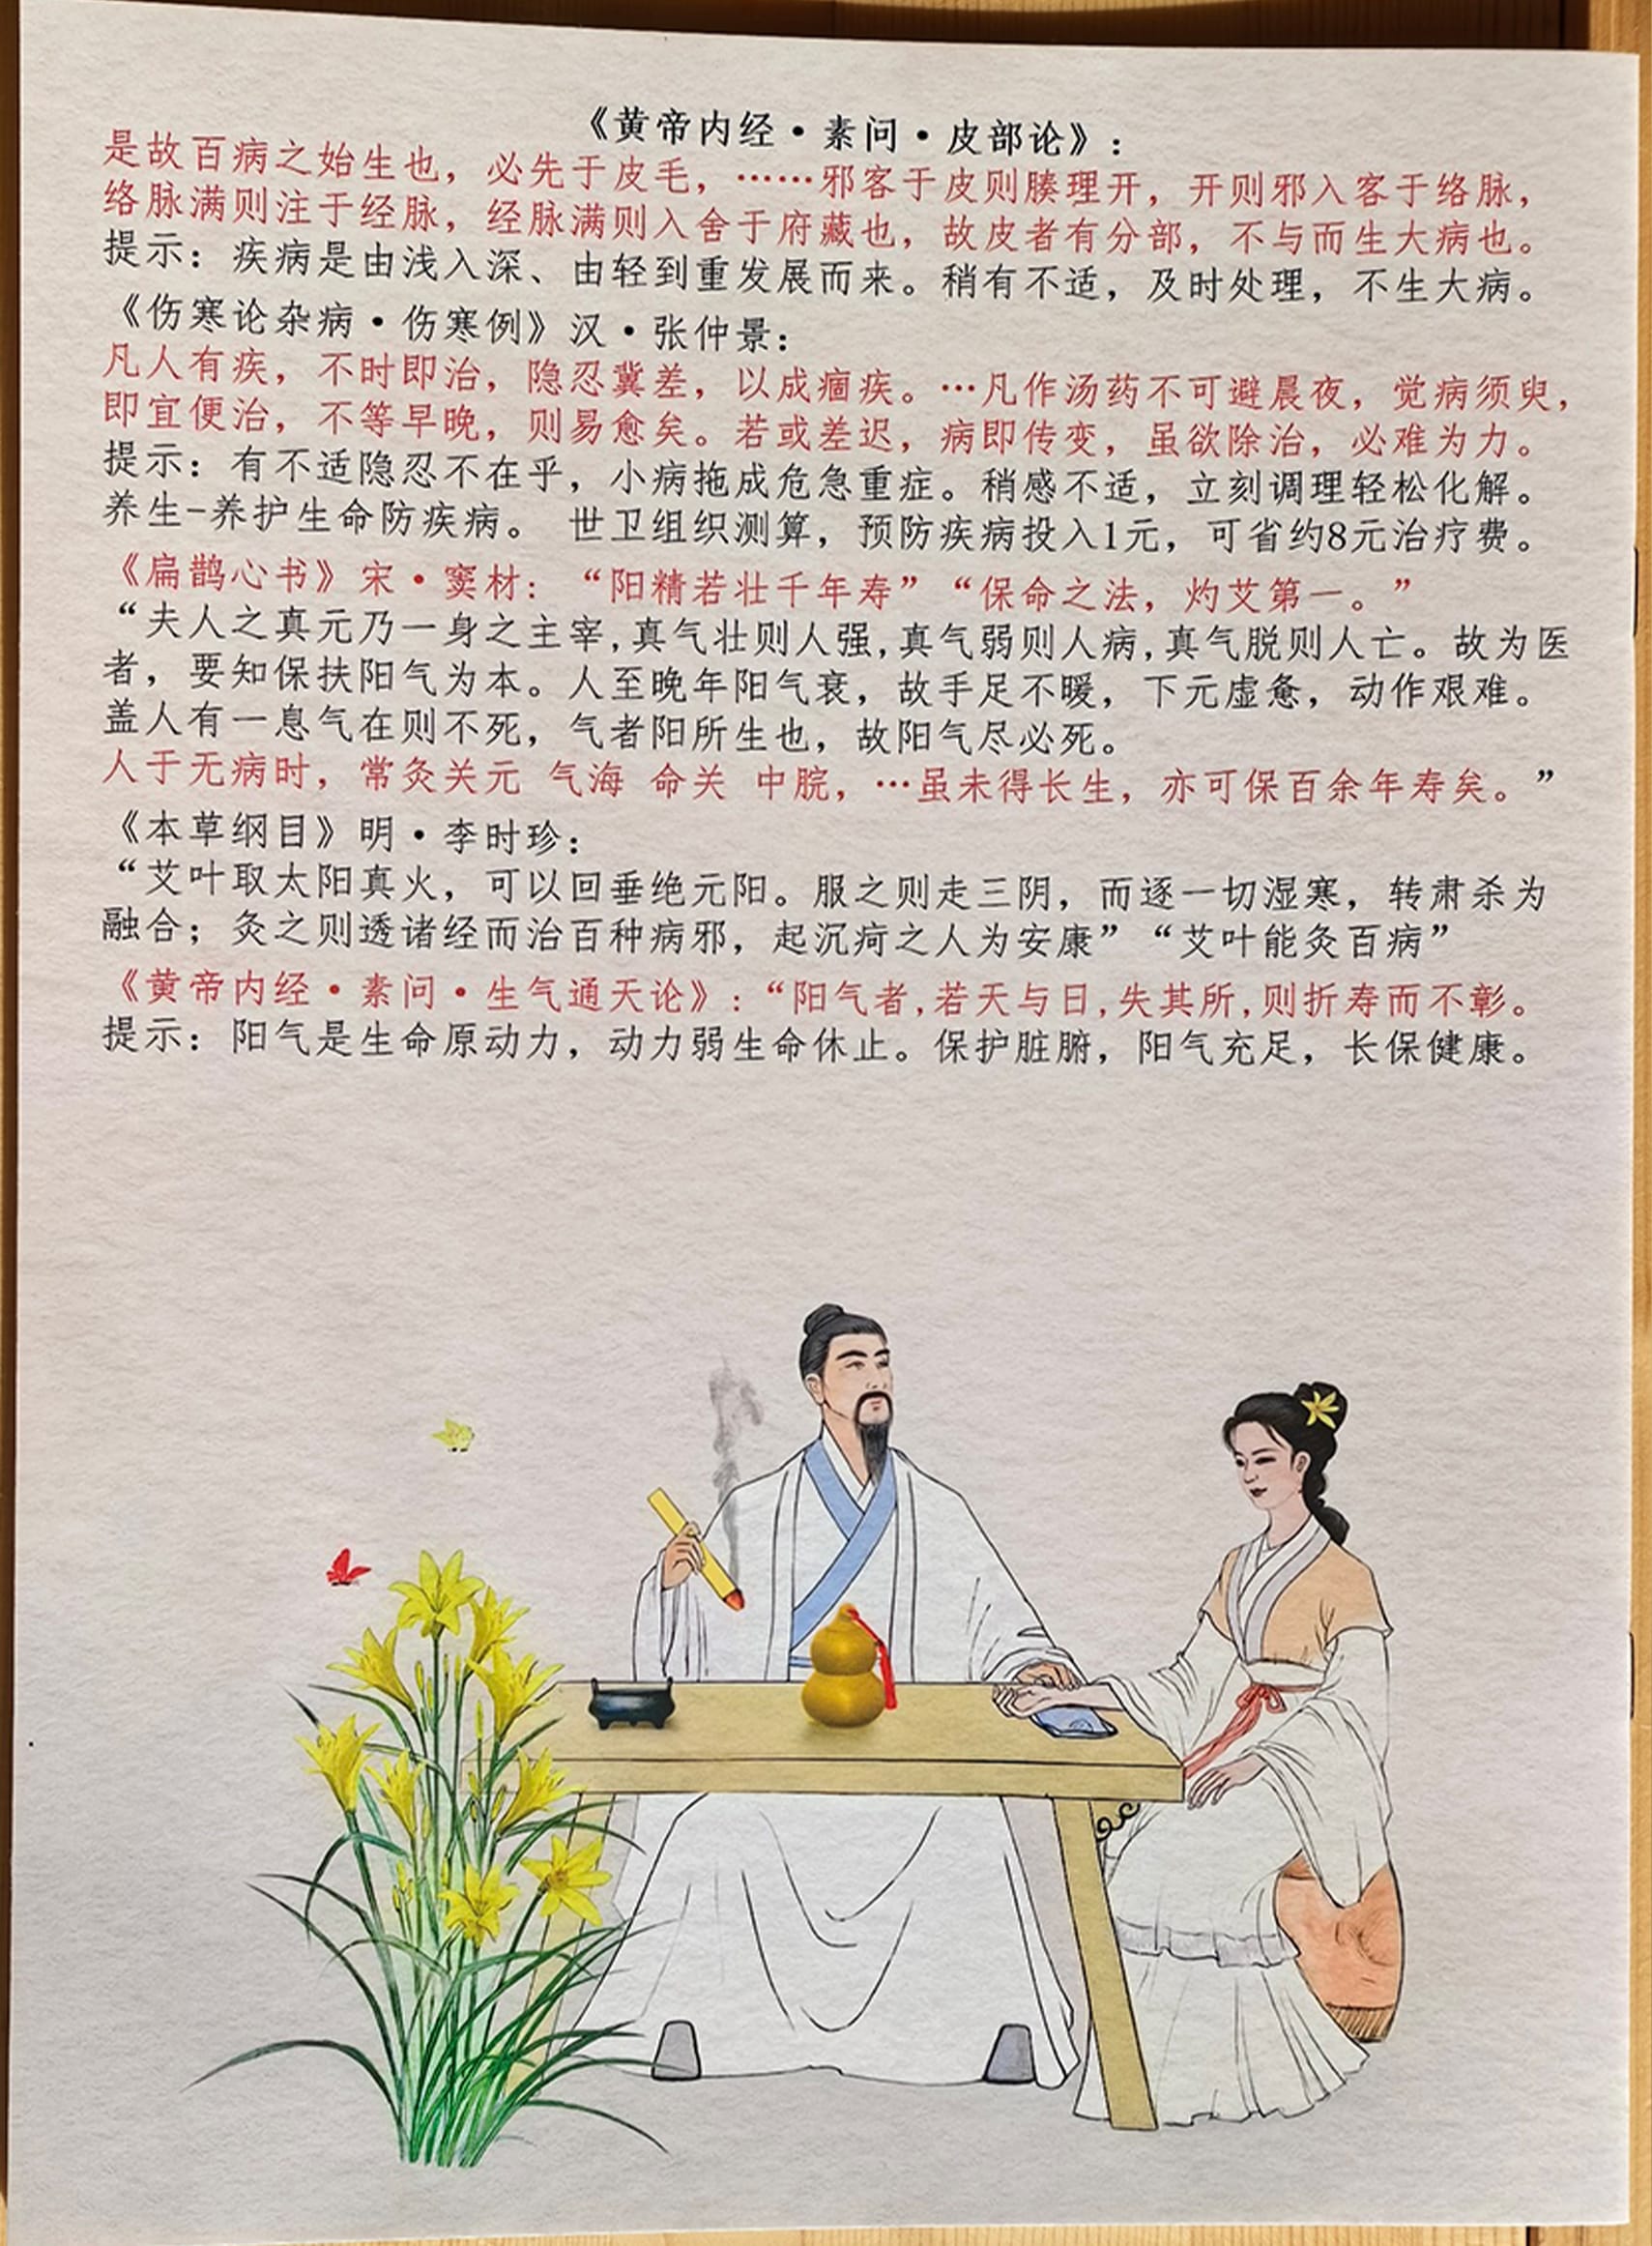 《黄帝内经·素问·皮部论》：
是故百病之始生也，必先于皮毛，……邪客于皮则腠理开，开则邪入客于络脉，
络脉满则注于经脉，经脉满则入舍于府藏也，故皮者有分部，不与而生大病也。
提示：疾病是由浅入深、由轻到重发展而来。稍有不适，及时处理，不生大病。
《伤寒论杂病·伤寒例》汉·张仲景：
凡人有疾，不时即治，隐忍冀差，以成痼疾。…凡作汤药不可避晨夜，觉病须臾，
即宜便治，不等早晚，则易愈矣。若或差迟，病即传变，虽欲除治，必难为力。
提示：有不适隐忍不在乎，小病拖成危急重症。稍感不适，立刻调理轻松化解。
养生-养护生命防疾病。 世卫组织测算，预防疾病投入1元，可省约8元治疗费。
《扁鹊心书》宋·窦材：“阳精若壮千年寿”“保命之法，灼艾第一。”
“夫人之真元乃一身之主宰,真气壮则人强,真气弱则人病,真气脱则人亡。故为医
者，要知保扶阳气为本。人至晚年阳气衰，故手足不暖，下元虚惫，动作艰难。
盖人有一息气在则不死，气者阳所生也，故阳气尽必死。
人于无病时，常灸关元 气海 命关 中脘，…虽未得长生，亦可保百余年寿矣。”
《本草纲目》明·李时珍：
“艾叶取太阳真火，可以回垂绝元阳。服之则走三阴，而逐一切湿寒，转肃杀为
融合；灸之则透诸经而治百种病邪，起沉疴之人为安康”“艾叶能灸百病”
《黄帝内经·素问·生气通天论》:“阳气者,若天与日,失其所,则折寿而不彰。
提示：阳气是生命原动力，动力弱生命休止。保护脏腑，阳气充足，长保健康。